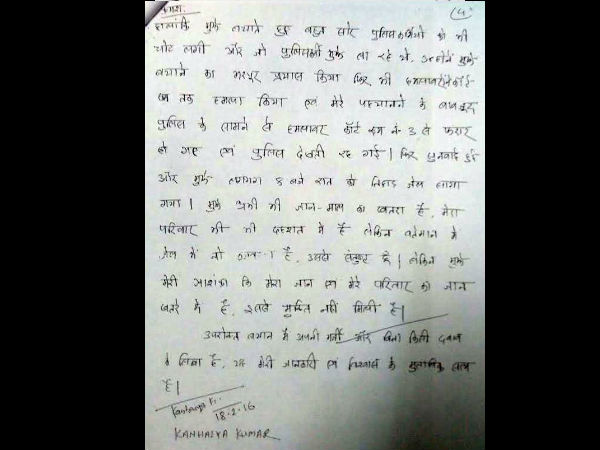 क्रमशः (4)
हालांकि मुझे बचाते हुए बहुत सारे पुलिसकर्मियों को भी
चोट लगी और जो पुलिसकर्मी मुझे ला रहे थे, उन्होंने मुझे
बचाने का भरपूर प्रयास किया फिर भी हमलावरों ने कोर्ट-
रूम तक हमला किया एवं मेरे पहचानने के बावजूद
पुलिस के सामने से हमलावर कोर्ट रूम नं-3 से फरार
हो गए एवं पुलिस देखती रह गई। फिर सुनवाई हुई
और मुझे लगभग 6 बजे रात को तिहाड़ जेल लाया
गया। मुझे अभी भी जान-माल का खतरा है, मेरा
परिवार भी दहशत में है लेकिन वर्तमान में
जेल में जो है, उससे संतुष्ट हूँ। लेकिन मुझे
मेरी आशंका कि मेरा जान एवं मेरे परिवार का जान
खतरे में है, इससे मुक्ति नहीं मिली है।
उपरोक्त बयान मैं अपनी मर्जी और बिना किसी दबाव
के लिखा है, यह मेरी जानकारी एवं विश्वास के मुताबिक सत्य
है।
Kanhaiya Kr.
18-2-16
KANHAIYA KUMAR